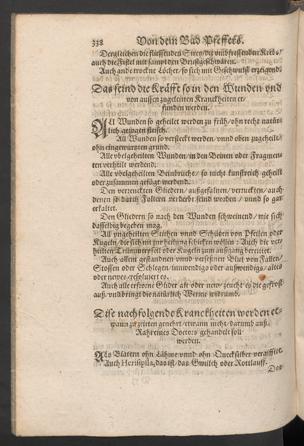 338 Von dem Bad Pfeffers.
auch die Fistel mit sampt den Brustgeschwären.
Auch andere trockne Löcher so sich mit Geschwulst erzeigend.
Das seind die Kräfft so in den Wunden vnd
von aussen zugefeinten Kranckheiten er-
funden werden.
All Wunden so geheilet worden zu früh / ohn recht natür-
lich
All Wunden so versteckt worden / vnd oben zugeheilt /
ohn eingewurtzten grund.
Alle vbelgeheilten Wunden / in den Beinen oder Fragmen-
ten verheilt worden.
Alle vbelgeheilten Beinbrüch / so nicht kunstreich geheilt
oder zusammen gefügt werdend.
Den verrenckten Glidern / außgefallnen / verruckten / auch
denen so durch Foltern verderbt seind worden / vnnd so gar
erkaltet.
Den Glidern so nach den Wunden schweinend / wie sich
dasselbig begeben mag.
All vngeheilten Stichen vnnd Schüssen von Pfeilen oder
Kugeln / die sich mit zur heilung schicken wöllen: Auch die ver-
heilten Trümmer oder Kugeln zum außgang bereitet.
Auch allem gestandenen vnnd versessnen Blut von Fallen /
Stossen oder Schlegen / innwendig oder außwendig / altes
oder newes / resoluiert es.
Auch alle erfrorne Glider alt oder new / zeucht es die gefröst
auß / vnd bringt die natürlich Werme widerumb.
Dise nachfolgende Kranckheiten werden et-
wann zu zeiten genehrt / etwann nicht: darumb auß
Raht eines Doctors gehandelt soll
werden.
Als Blatern ohn Lähme vnnd ohn Quecksilber
Auch Herispila, das ist / das Gewilch oder Rotlauff.
Den